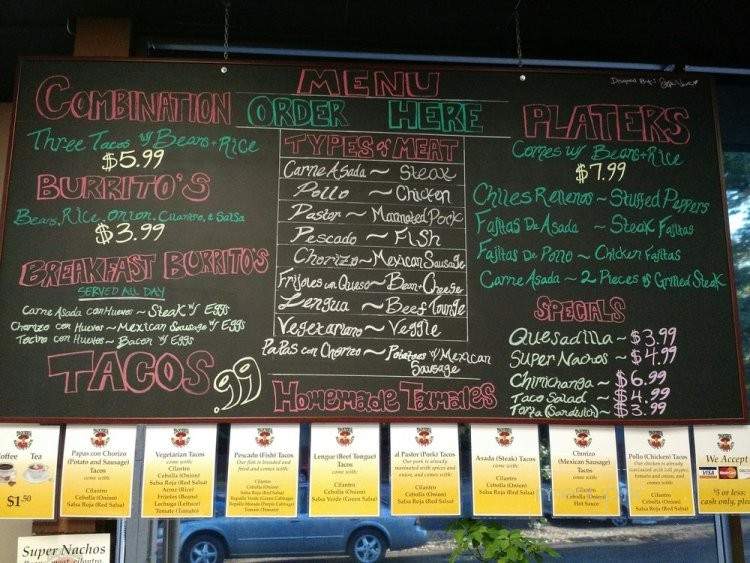 MENU
ORDER HERE
COMBINATION
Three Tacos w/ Beans + Rice
$5.99
BURRITO'S
Beans, Rice, onion, Cilantro, & Salsa
$3.99
BREAKFAST BURRITO'S
SERVED ALL DAY
Carne Asada con Huevo ~ Steak w/ Eggs
Chorizo con Huevo ~ Mexican Sausage w/ EGGS
Tocino con Huevo ~ Bacon w/ Eggs
TACOS .99
TYPES of MEAT
Carne Asada ~ Steak
Pollo ~ Chicken
Pastor ~ Marinated Pork
Pescado ~ Fish
Chorizo ~ Mexican Sausage
Frijoles con Queso ~ Bean + Cheese
Lengua ~ Beef Tounge
Vegetariano ~ Veggie
Papas con Chorizo ~ Potatoes w/ Mexican
Sausage
Homemade Tamales
Designed By:
PLATERS
Comes w/ Beans + Rice
$7.99
Chiles Rellenos ~ Stuffed Peppers
Fajitas De Asada ~ Steak Fajitas
Fajitas De Pollo ~ Chicken Fajitas
Carne Asada ~ 2 Pieces of Grilled Steak
SPECIALS
Quesadilla ~ $3.99
Super Nachos ~ $4.99
Chimichanga ~ $6.99
Taco Salad ~ $4.99
Torta (Sandwich) ~ $3.99
Coffee Tea
$1.50
Papas con Chorizo
(Potato and Sausage)
Tacos
come with:
Cilantro
Cebolla (Onion)
Salsa Roja (Red Salsa)
Vegetarian Tacos
come with:
Cilantro
Cebolla (Onion)
Salsa Roja (Red Salsa)
Arroz (Rice)
Frijoles (Beans)
Lechuga (Lettuce)
Tomate (Tomato)
Pescado (Fish) Tacos
Our fish is breaded and
fried and comes with:
Cilantro
Cebolla (Onion)
Salsa Roja (Red Salsa)
Repollo Verde (Green Cabbage)
Repollo Morado (Purple Cabbage)
Tomate (Tomato)
Lengue (Beef Tongue)
Tacos
come with:
Cilantro
Cebolla (Onion)
Salsa Verde (Green Salsa)
al Pastor (Pork) Tacos
Our pork is already
marinated with spices and
onion, and comes with:
Cilantro
Cebolla (Onion)
Salsa Roja (Red Salsa)
Asada (Steak) Tacos
come with:
Cilantro
Cebolla (Onion)
Salsa Roja (Red Salsa)
Chorizo
(Mexican Sausage)
Tacos
come with:
Cilantro
Cebolla (Onion)
Hot Sauce
Pollo (Chicken) Tacos
Our chicken is already
marinated with
tomato and onion, and
comes with:
Cilantro
Cebolla (Onion)
Salsa Roja (Red Salsa)
We Accept
VISA
$5 or less:
cash only, please
Super Nachos